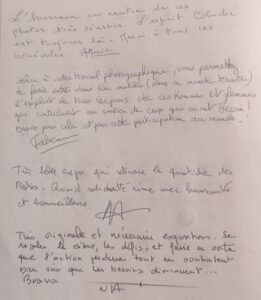 L'humain au centre de ces
photos très réussies. L'esprit Coluche
est toujours là. Merci à tous les
bénévoles.
grâce à votre travail photographique, vous permettez
de faire entrer dans la
l'exploit de tous les jours de ces hommes et femmes
qui au soutien de ceux qui en ont besoin !
bravo pour cela et pour cette participation au monde.
Fabien
Très belle expo qui retrace le quotidien des
Restos. Quand solidarité rime avec humanité
et bienveillance.
Très originale et nécessaire exposition. Se
rappeler le début, les défis, et faire en sorte
que l'action perdure tout en souhaitant
bien sûr que les besoins diminuent...
Bravo
NA